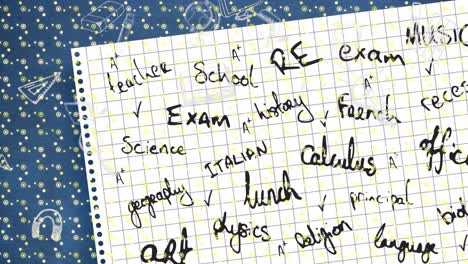 MUSIC
A+ A+ RE exam
teacher School
Exam A+ history French rece
Science A+
ITALIAN calculus A+ offic
A+
geography lunch principal
art physics A+ religion language